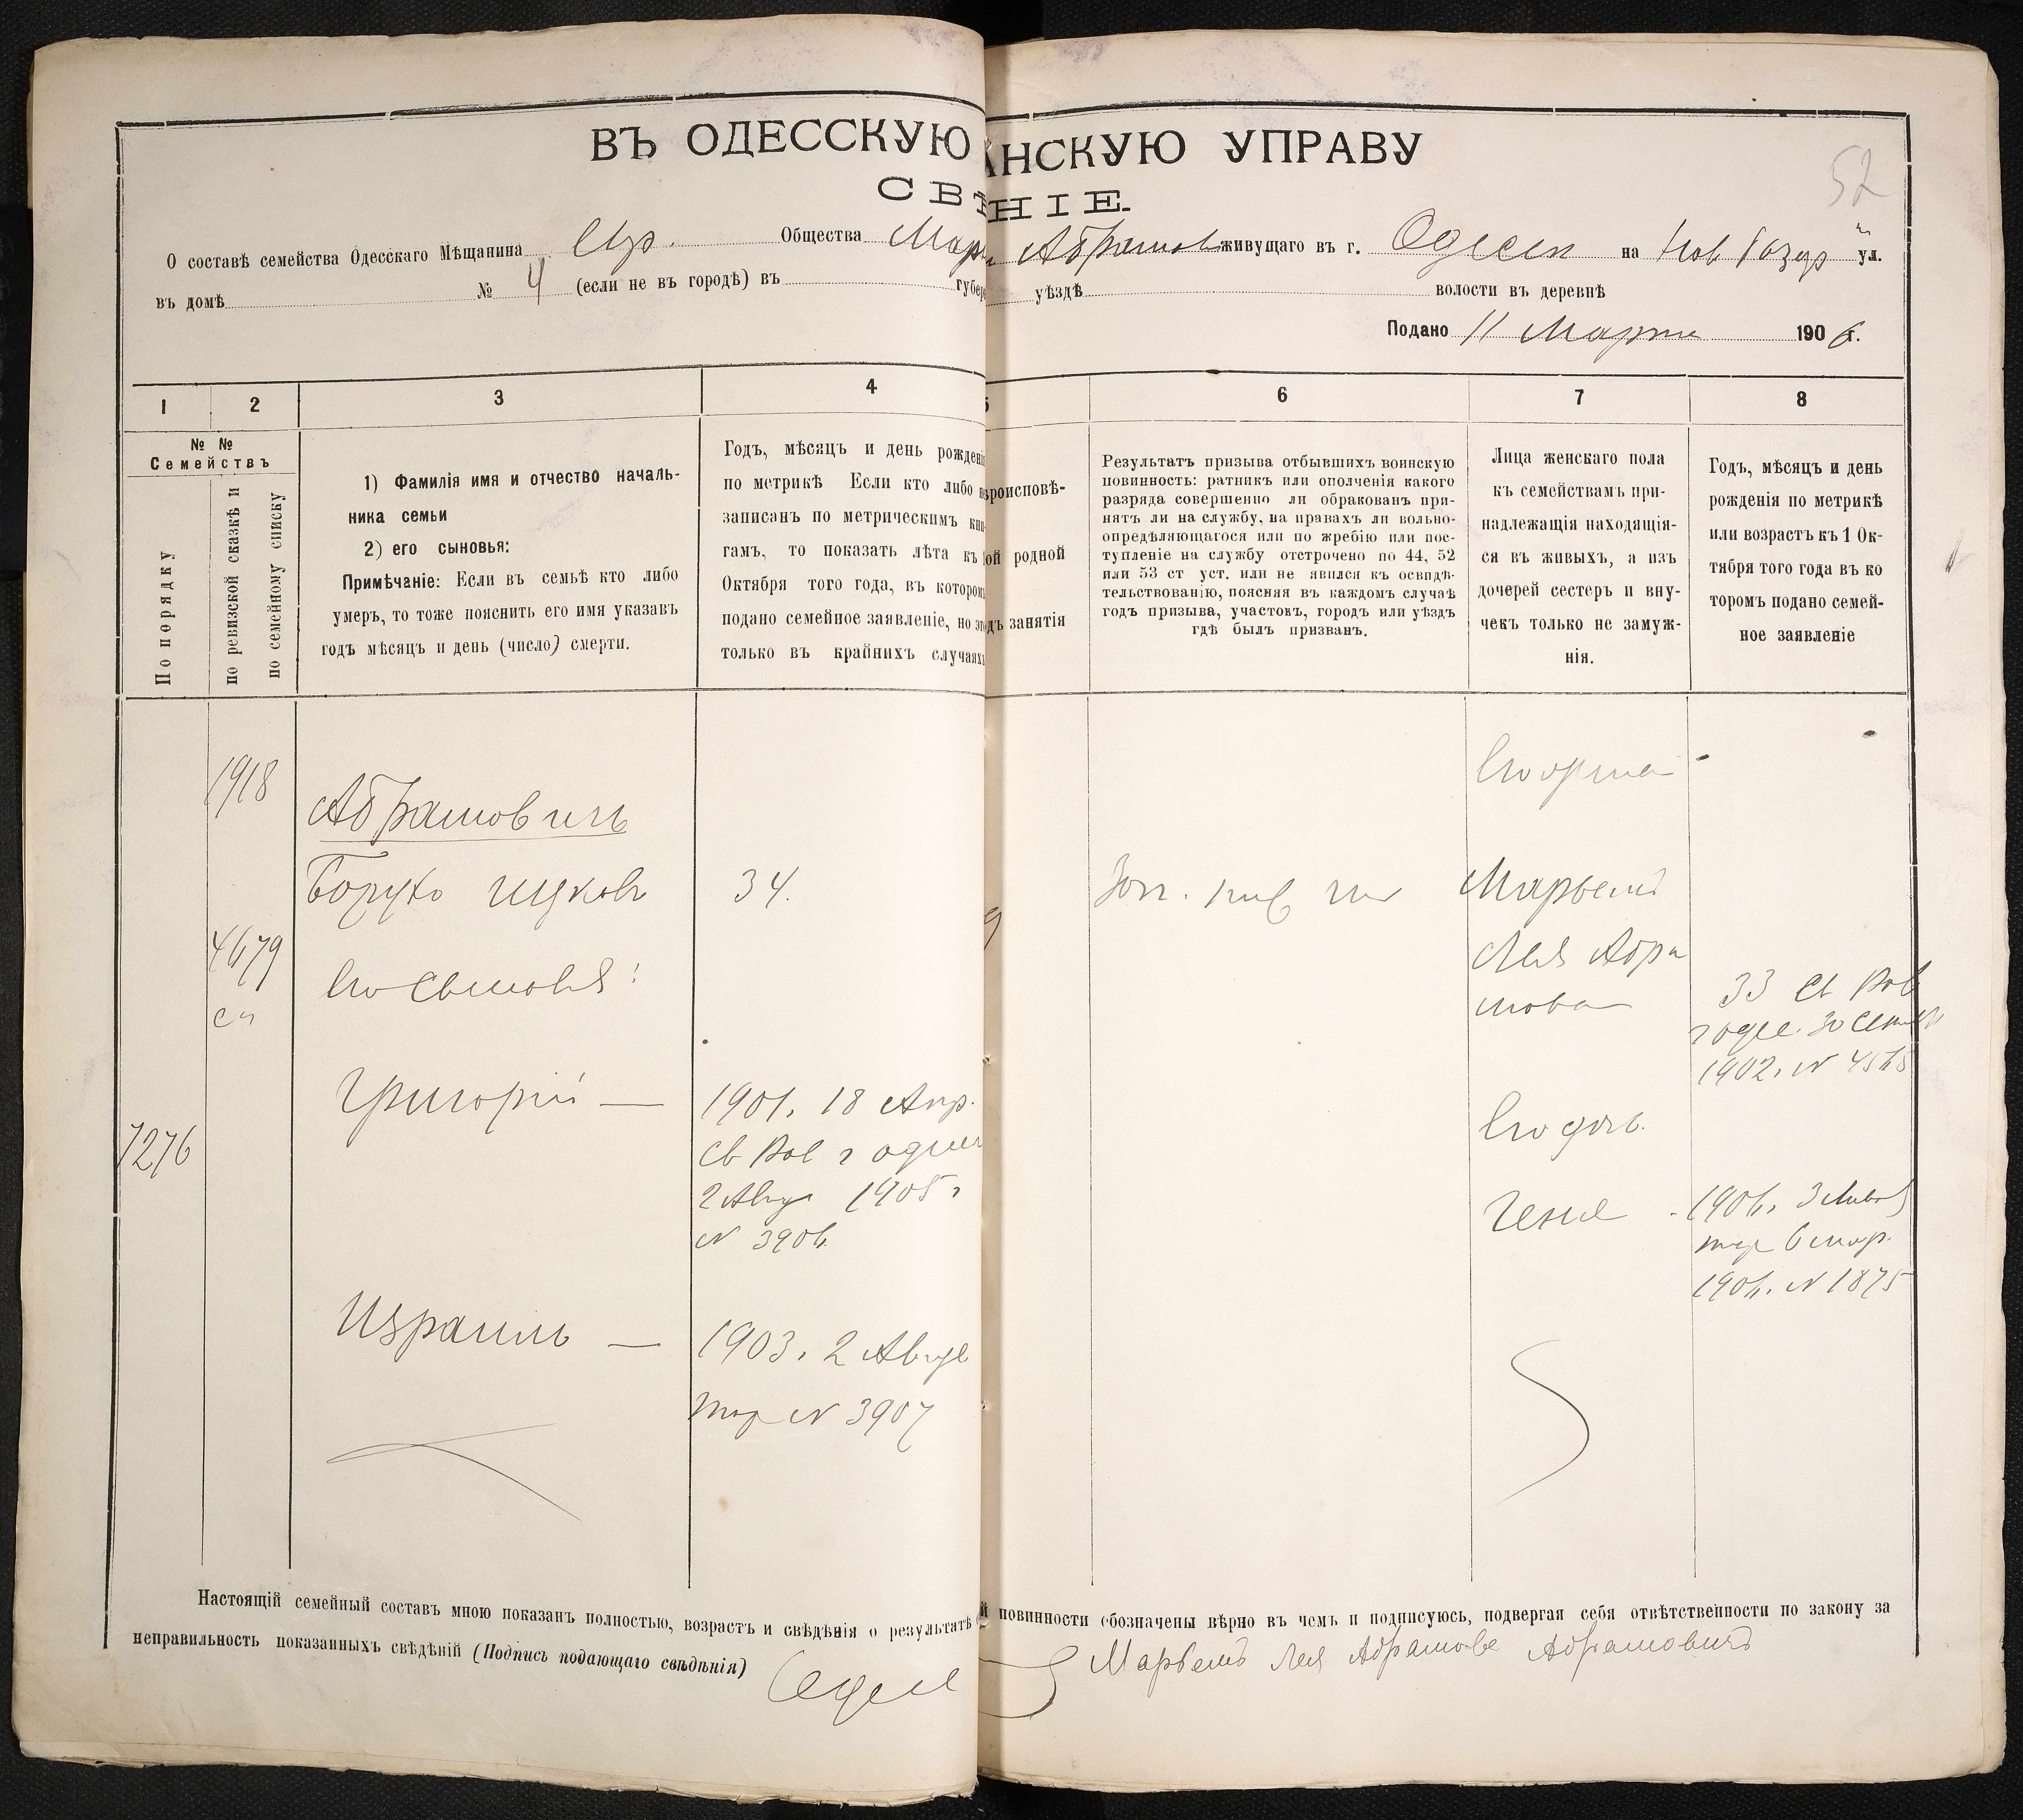 ВЪ ОДЕССКУЮ АНСКУЮ УПРАВУ
СВѢ НІЕ.
52
О составѣ семейства Одесскаго Мѣщанина Общества живущаго въ г. Одессѣ на ул.
въ домѣ № 4 (если не въ городѣ) въ губер уѣздѣ волости въ деревнѣ
Подано 11 Марта 1906 г.
1 2 3 4 5 6 7 8
№ №
Семействъ
По порядку
по ревизской сказкѣ и
по семейному списку
1) Фамилія имя и отчество началь-
ника семьи
2) его сыновья:
Примѣчаніе: Если въ семьѣ кто либо
умеръ, то тоже пояснить его имя указавъ
годъ мѣсяцъ и день (число) смерти.
Годъ, мѣсяцъ и день рожденія
по метрикѣ Если кто либо н
записанъ по метрическимъ кни-
гамъ, то показать лѣта къ 1
Октября того года, въ которомъ
подано семейное заявленіе, но это
только въ крайнихъ случаяхъ
ѣроисповѣ-
ой родной
дъ занятія
Результатъ призыва отбывшихъ воинскую
повинность: ратникъ или ополченія какого
разряда совершенно ли обракованъ при-
нятъ ли на службу, на правахъ ли вольно-
опредѣляющагося или по жребію или пос-
тупленіе на службу отстрочено по 44, 52
или 53 ст уст. или не явился къ освидѣ-
тельствованію, поясняя въ каждомъ случаѣ
годъ призыва, участокъ, городъ или уѣздъ
гдѣ былъ призванъ.
Лица женскаго пола
къ семействамъ при-
надлежащія находящія-
ся въ живыхъ, а изъ
дочерей сестеръ и вну-
чекъ только не замуж-
нія.
Годъ, мѣсяцъ и день
рожденія по метрикѣ
или возрастъ къ 1 Ок-
тября того года въ ко
торомъ подано семей-
ное заявленіе
1918
Абрамовичъ
Борухъ Ицковъ 34.
4679
Его сыновья:
Григорій — 1901. 18 Апр.
Св Рав г Одессы
2 Авгу 1905 г
N 3906
7276
Израиль — 1903. 2 Авгус
N 3907
Его жена
Марьемъ
Лея Абра
мова
33 Св Рав
г Одес. 30 Сент
1902. N 4565
Его дочь.
Геня 1906. 3 Янв
6 мар.
1906. N 1875
Настоящій семейный составъ мною показанъ полностью, возрастъ и свѣдѣнія о результатѣ й повинности обозначены вѣрно въ чемъ и подписуюсь, подвергая себя отвѣтственности по закону за
неправильность показанныхъ свѣдѣній (Подпись подающаго свѣдѣнія)
Марьемъ Лея Абрамова Абрамовичъ